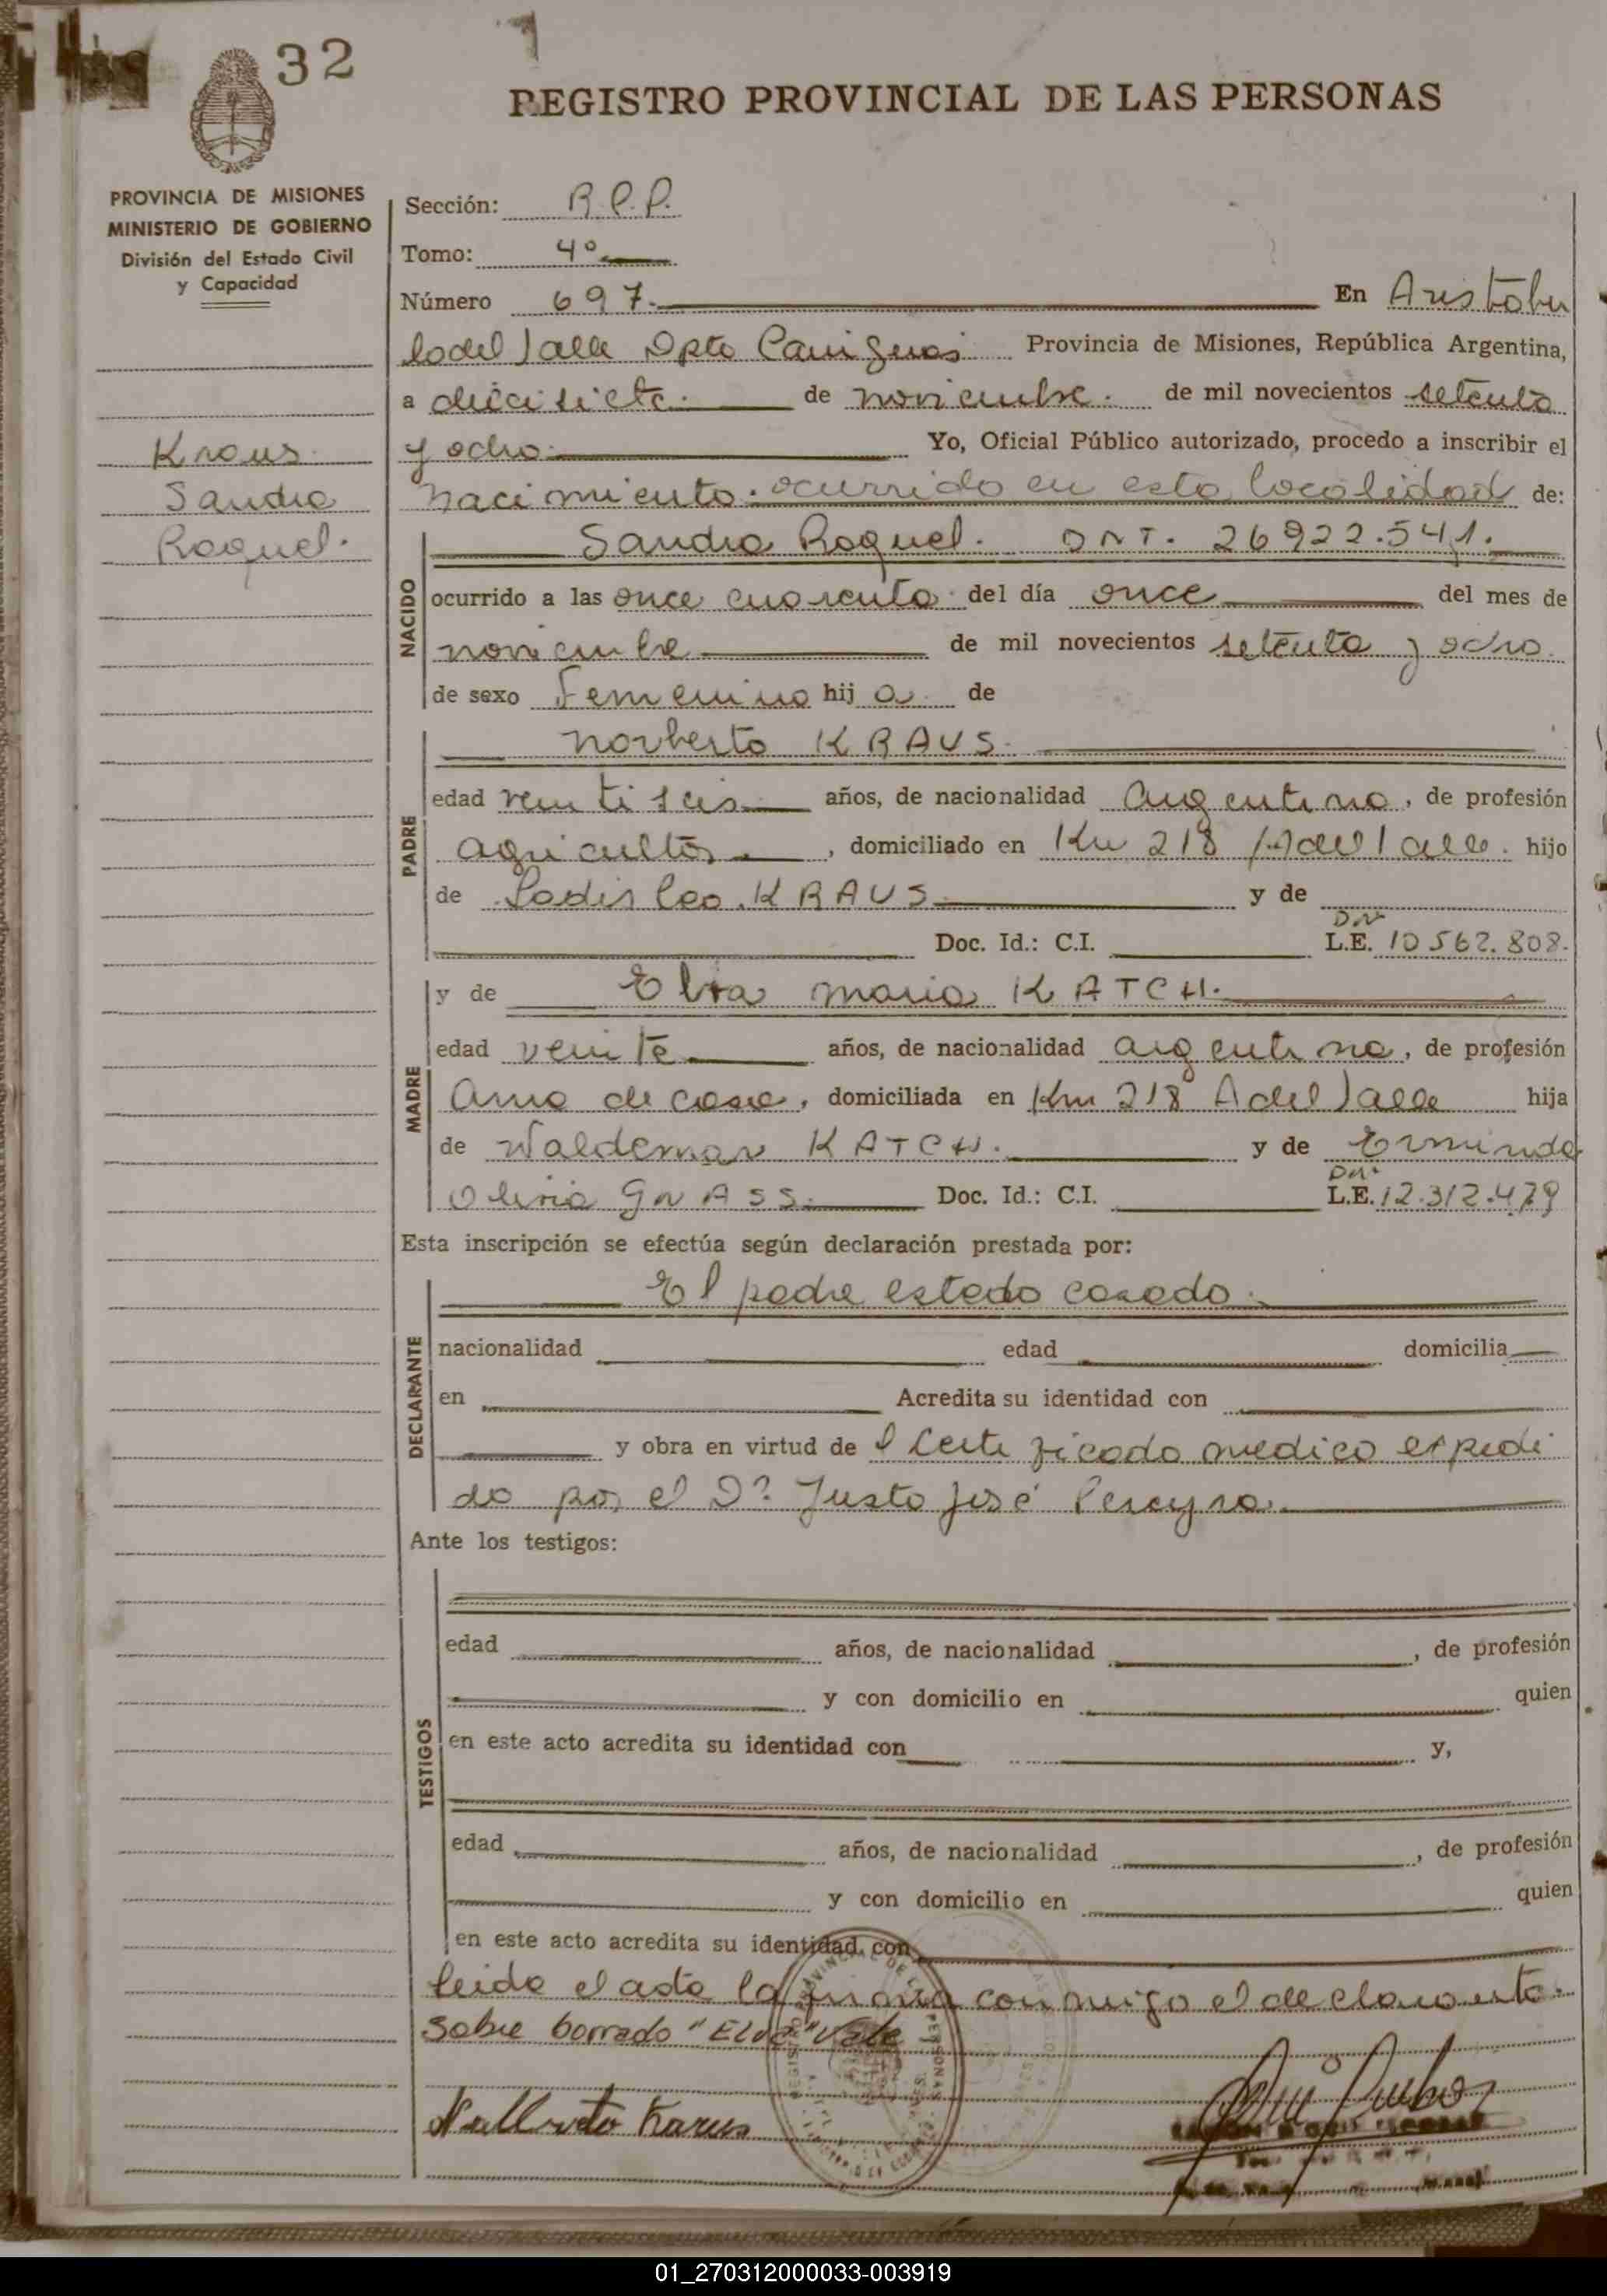 32
REGISTRO PROVINCIAL DE LAS PERSONAS
PROVINCIA DE MISIONES
MINISTERIO DE GOBIERNO
División del Estado Civil
y Capacidad
Kraus
Sandra
Raquel.
Sección: R.P.P.
Tomo: 4º
Número 697. En Aristobu
lo del Valle Dpto Cainguas Provincia de Misiones, República Argentina,
a diecisiete. de noviembre. de mil novecientos setenta
y ocho. Yo, Oficial Público autorizado, procedo a inscribir el
nacimiento. ocurrido en esta localidad de:
NACIDO
Sandra Raquel. DNI. 26922.541.
ocurrido a las once cuarenta del día once del mes de
noviembre de mil novecientos setenta y ocho.
de sexo Femenino hij a de
PADRE
Norberto KRAUS.
edad veintiseis años, de nacionalidad argentina, de profesión
agricultor, domiciliado en Km 218 A del Valle. hijo
de Ladislao KRAUS y de
Doc. Id.: C.I. DNI L.E. 10562.808.
MADRE
y de Elva Maria KATCH.
edad veinte años, de nacionalidad argentina, de profesión
Ama de casa, domiciliada en Km 218 A del Valle hija
de Waldemar KATCH. y de Erminda
Oliria GRASS. Doc. Id.: C.I. DNI L.E. 12.312.479
Esta inscripción se efectúa según declaración prestada por:
DECLARANTE
El padre estado casado.
nacionalidad edad domicilia
en Acredita su identidad con
y obra en virtud de l Certificado medico expedi
do por el Dr. Justo José Pereyra.
Ante los testigos:
TESTIGOS
edad años, de nacionalidad , de profesión
y con domicilio en quien
en este acto acredita su identidad con y,
edad años, de nacionalidad , de profesión
y con domicilio en quien
en este acto acredita su identidad con
leida el acta la firma conmigo el declarante.
Sobre borrado "Elva" Vale
01_270312000033-003919